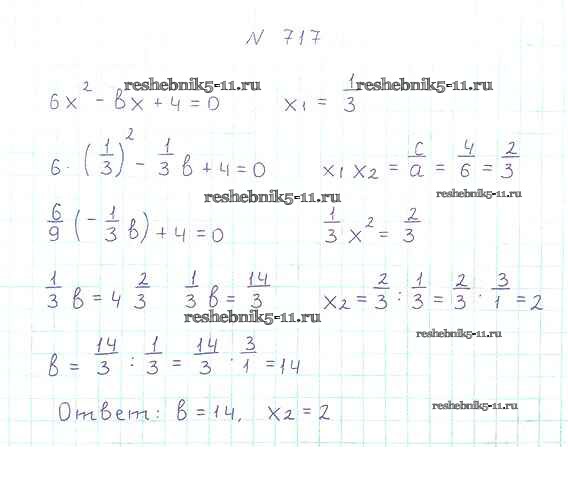 N 717
6x² - bx + 4 = 0   x₁ = 1/3
reshebnik5-11.ru   reshebnik5-11.ru
6 · (1/3)² - 1/3 b + 4 = 0   x₁ x₂ = c/a = 4/6 = 2/3
reshebnik5-11.ru   reshebnik5-11.ru
6/9 (- 1/3 b) + 4 = 0   1/3 x² = 2/3
1/3 b = 4 2/3   1/3 b = 14/3   x₂ = 2/3 : 1/3 = 2/3 · 3/1 = 2
reshebnik5-11.ru   reshebnik5-11.ru
b = 14/3 : 1/3 = 14/3 · 3/1 = 14
Ответ: b = 14, x₂ = 2
reshebnik5-11.ru